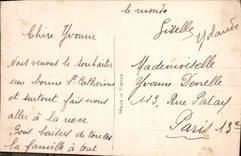 Chère Yvonne
Nous venons te souhaiter
une bonne Ste Catherine
et surtout fais nous
aller à la noce
Bons baisers de toutes
la famille à tout
le monde
Giselle
Made in France
Mademoiselle
Yvonne Denelle
113, Rue
Paris 13e